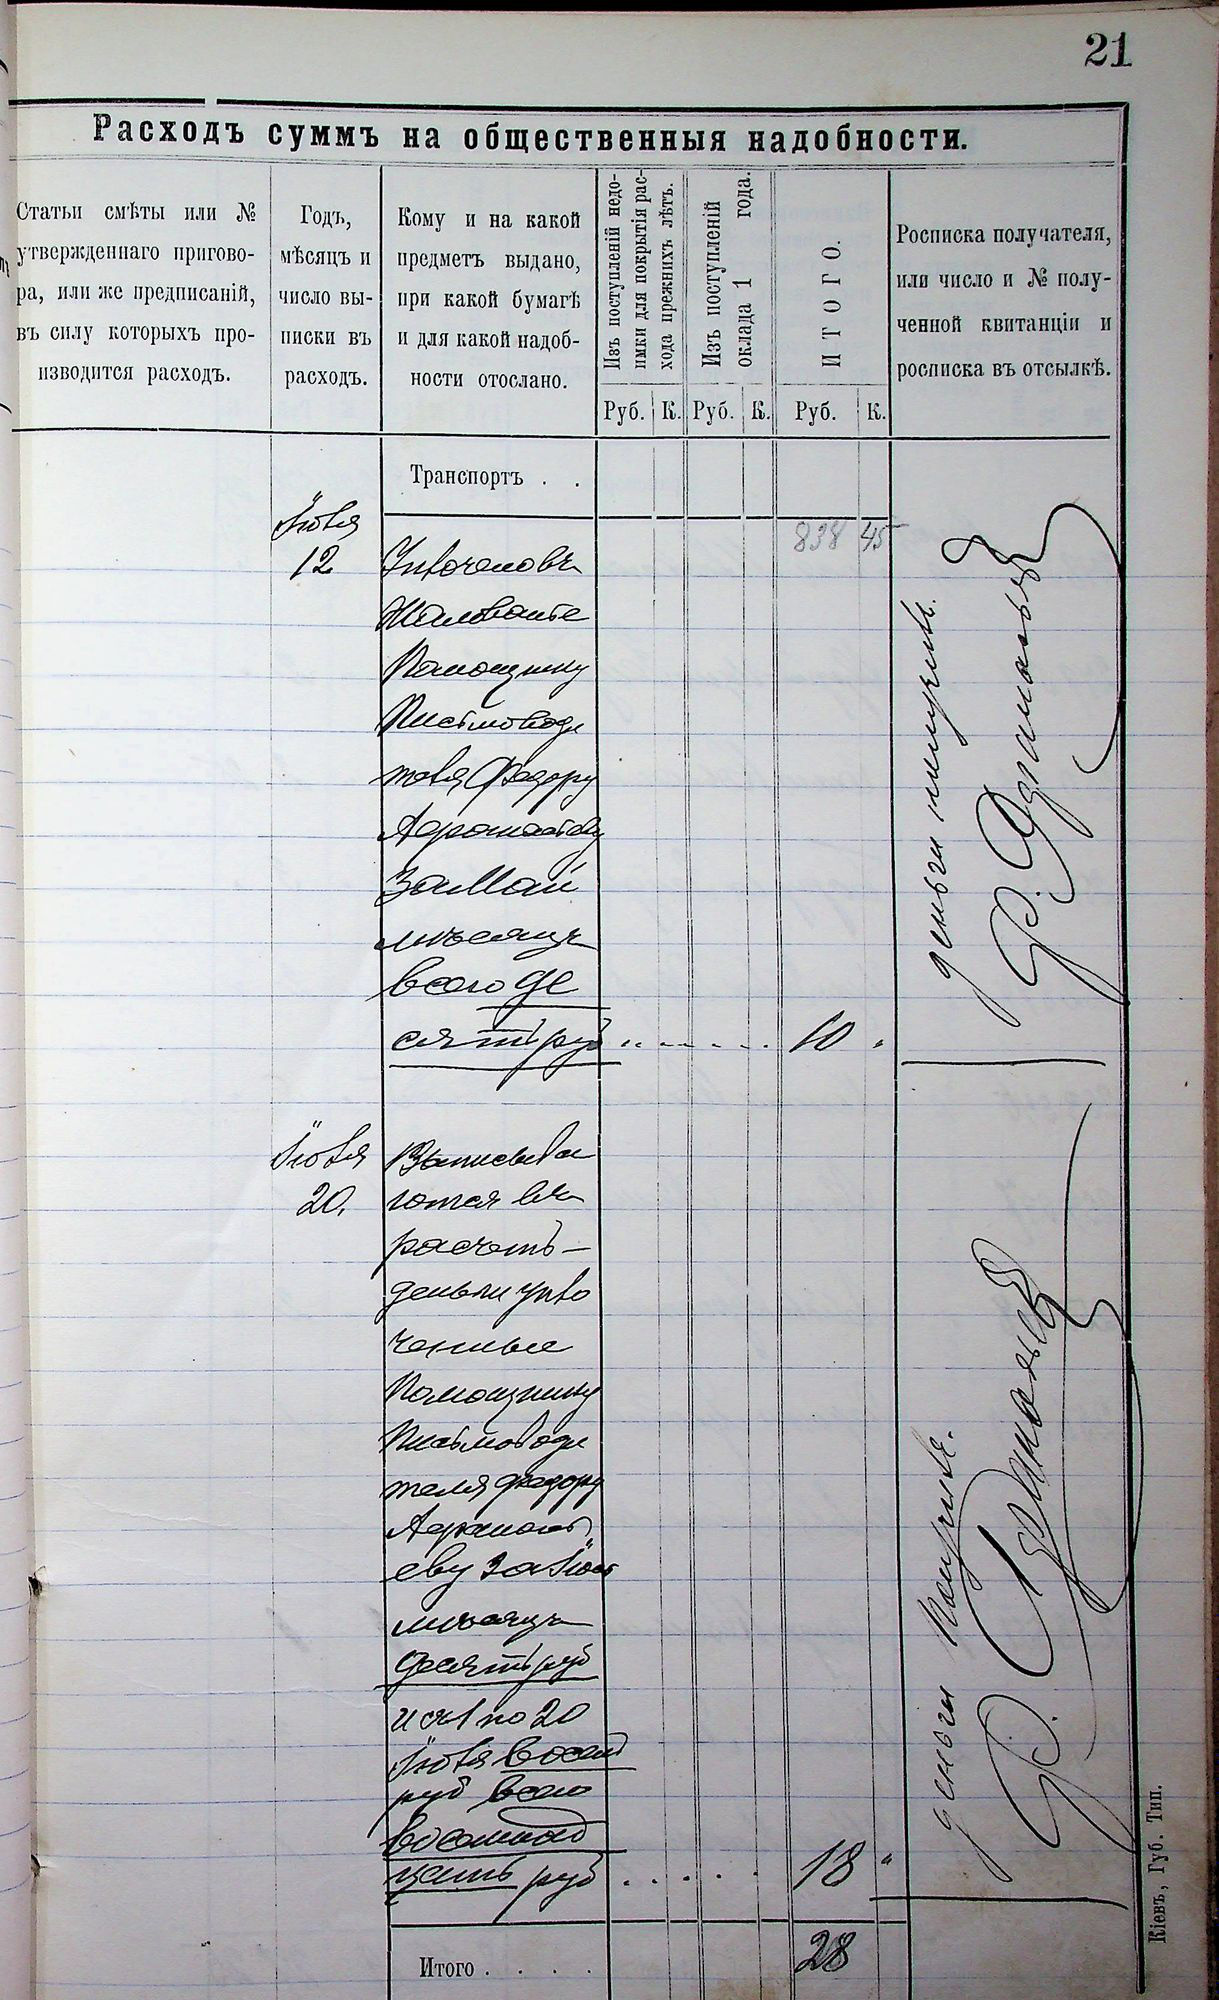 21
Расходъ суммъ на общественныя надобности.
Статьи смѣты или №
утвержденнаго пригово-
ра, или же предписаній,
въ силу которыхъ про-
изводится расходъ.
Годъ,
мѣсяцъ и
число вы-
писки въ
расходъ.
Кому и на какой
предметъ выдано,
при какой бумагѣ
и для какой надоб-
ности отослано.
Изъ поступленій недо-
имки для покрытія рас-
хода прежнихъ лѣтъ.
Изъ поступленій
оклада 1 года.
ИТОГО.
Росписка получателя,
или число и № полу-
ченной квитанціи и
росписка въ отсылкѣ.
Руб. К. Руб. К. Руб. К.
Транспортъ . .
838 45
Іюля
12
Жалованіе
Помощнику
Письмоводи
теля Федору
За Май
мѣсяцъ
всего де
сять руб . . . . . . 10 "
деньги получилъ.
Іюля
20.
Выписыва
ются въ
расчетъ –
деньги упло
ченные
Помощнику
Письмоводи
теля Федору
еву за Іюнь
мѣсяцъ
десять руб
и съ 1 по 20
Іюля восемь
руб всего
восемнад
цать руб . . . . . 18 "
деньги Получилъ.
Итого . . . . 28
Кіевъ, Губ. Тип.